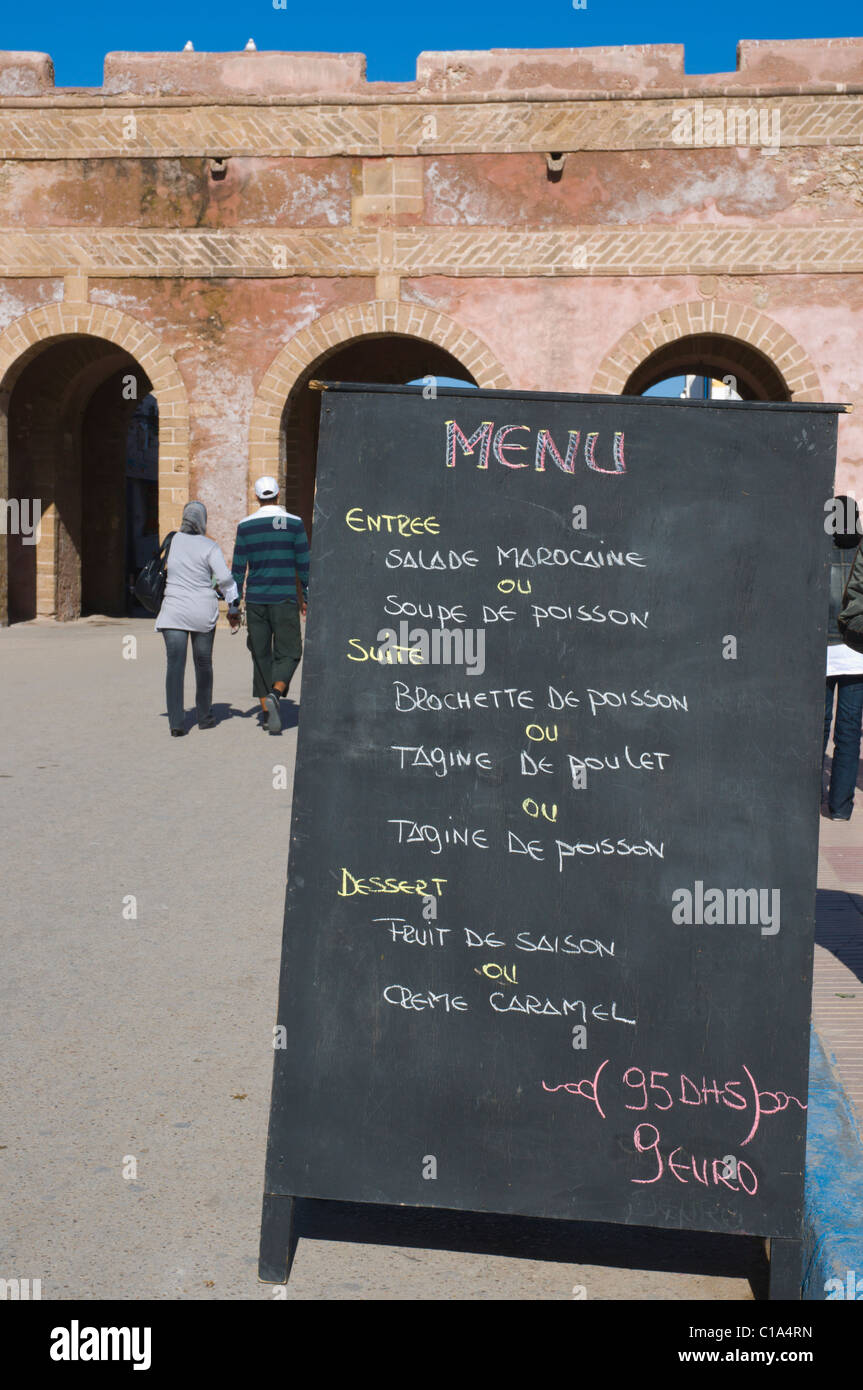 MENU
ENTREE
SALADE MAROCAINE
OU
SOUPE DE POISSON
SUITE
BROCHETTE DE POISSON
OU
TAGINE DE POULET
OU
TAGINE DE POISSON
DESSERT
FRUIT DE SAISON
OU
CREME CARAMEL
(95 DHS)
9 EURO
alamy
Image ID: C1A4RN
www.alamy.com